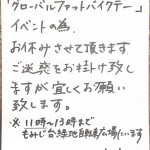 「グローバルファットバイクデー」
イベントの為、
お休みさせて頂きます
ご迷惑をお掛け致し
ますが宜しくお願い
致します。
※11時～13時まで
もみじ台緑地自転車広場にいます